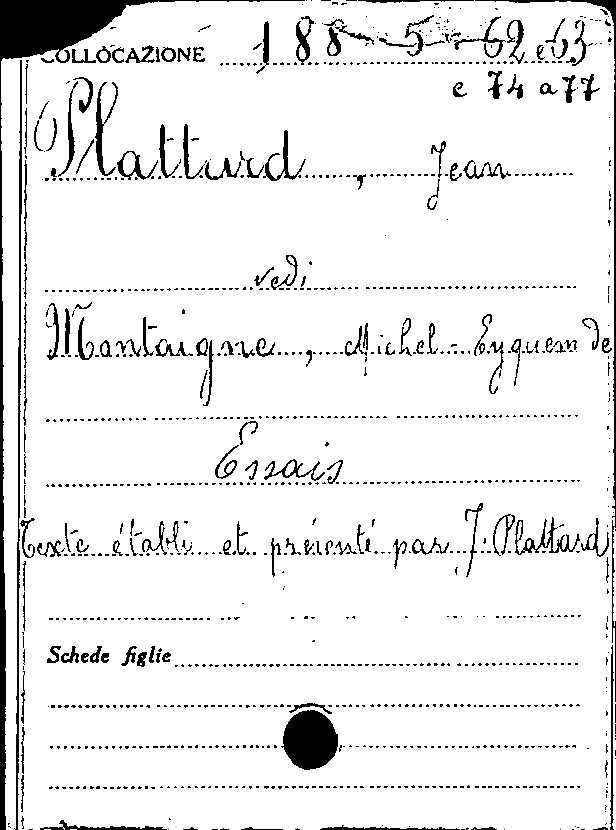 COLLOCAZIONE 188 - 5 - 62 e 63
e 74 a 77
Plattard, Jean
vedi
Montaigne, Michel - Eyquem de
Essais
Texte établi et présenté par J. Plattard
Schede figlie